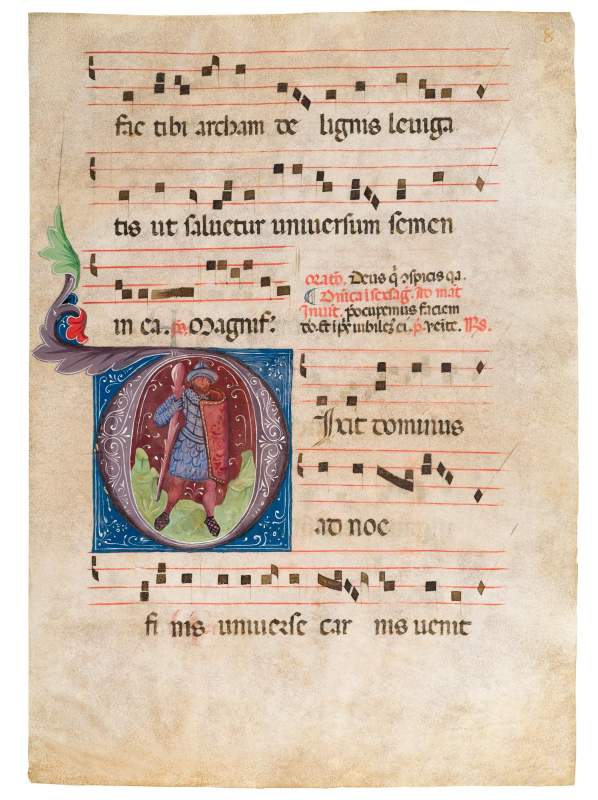 8
fac tibi archam de lignis leuiga
tis ut saluetur uniuersum semen
in ea. p̄s. Magnif:
oratō. Deus q̄ ɔspicis qa.
¶ Dn̄ica ī sexaḡ. Ad mat̄
Inuit. p̄ocupemus faciem
dō. Et ī ps̄ iubilem̾ ei. p̄s. Ueīte. R̄s.
Dixit dominus
ad noe
fi nis uniuerse car nis uenit